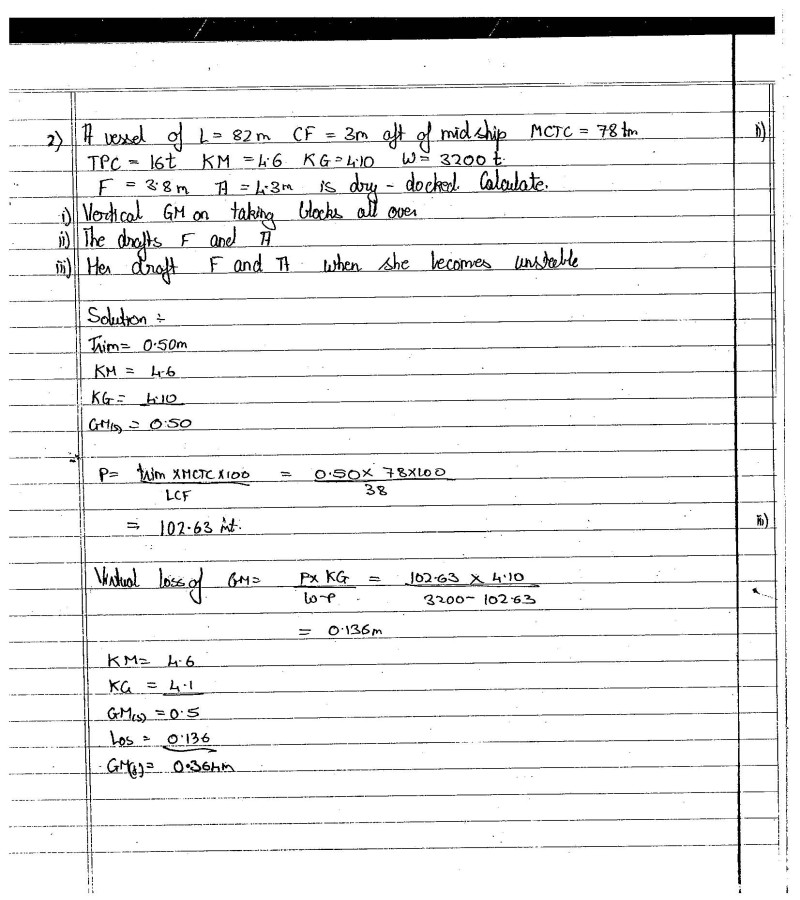 2) A vessel of L = 82m CF = 3m aft of midship MCTC = 78 tm
TPC = 16t KM = 4.6 KG = 4.10 W = 3200 t.
F = 3.8m A = 4.3m is dry-docked. Calculate.
i) Vertical GM on taking blocks all over
ii) The drafts F and A
iii) Her draft F and A when she becomes unstable
Solution :-
Trim = 0.50m
KM = 4.6
KG = 4.10
GM(s) = 0.50
P = trim x MCTC x 100 = 0.50 x 78 x 100
LCF 38
= 102.63 mt.
Virtual loss of GM = P x KG = 102.63 x 4.10
w-p 3200 - 102.63
= 0.136m
KM = 4.6
KG = 4.1
GM(s) = 0.5
Los = 0.136
GM(f) = 0.364m
ii)
iii)